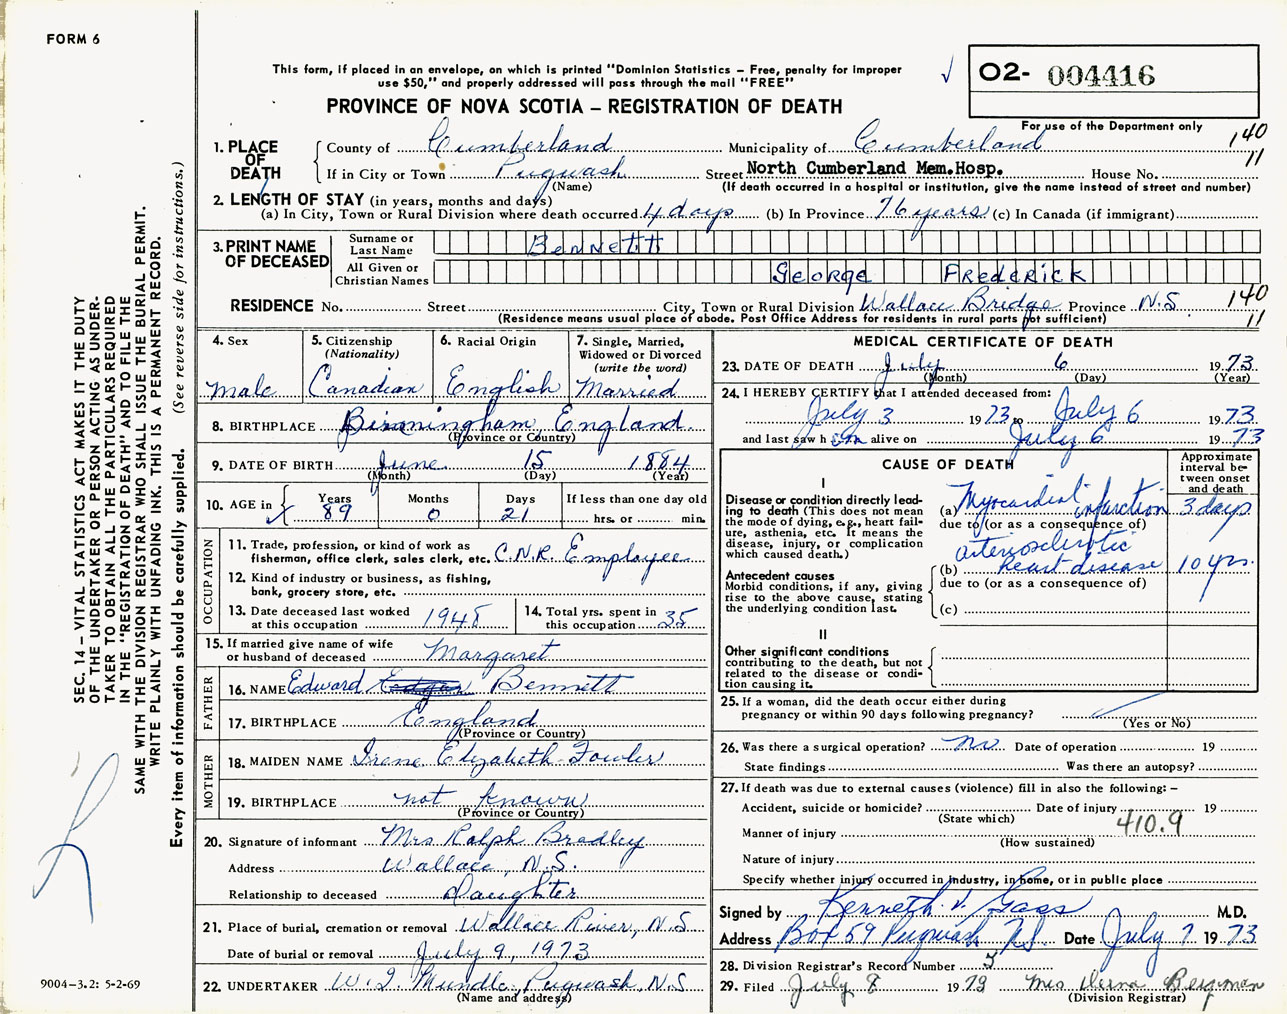 FORM 6
This form, if placed in an envelope, on which is printed "Dominion Statistics – Free, penalty for improper
use $50," and properly addressed will pass through the mail "FREE"
PROVINCE OF NOVA SCOTIA – REGISTRATION OF DEATH
O2- 004416
For use of the Department only
140
11
1. PLACE OF DEATH
County of Cumberland Municipality of Cumberland
If in City or Town Pugwash Street North Cumberland Mem.Hosp. House No.
(Name) (If death occurred in a hospital or institution, give the name instead of street and number)
2. LENGTH OF STAY (in years, months and days)
(a) In City, Town or Rural Division where death occurred 4 days (b) In Province 76 years (c) In Canada (if immigrant)
3. PRINT NAME OF DECEASED
Surname or Last Name BENNETT
All Given or Christian Names GEORGE FREDERICK
RESIDENCE No. Street City, Town or Rural Division Wallace Bridge Province N.S
140
11
(Residence means usual place of abode. Post Office Address for residents in rural parts not sufficient)
4. Sex
Male
5. Citizenship
(Nationality)
Canadian
6. Racial Origin
English
7. Single, Married,
Widowed or Divorced
(write the word)
Married
8. BIRTHPLACE Birmingham, England
(Province or Country)
9. DATE OF BIRTH June 15 1884
(Month) (Day) (Year)
10. AGE in
Years Months Days If less than one day old
89 0 21 hrs. or min.
OCCUPATION
11. Trade, profession, or kind of work as
fisherman, office clerk, sales clerk, etc. C.N.R. Employee
12. Kind of industry or business, as fishing,
bank, grocery store, etc.
13. Date deceased last worked
at this occupation 1948
14. Total yrs. spent in
this occupation 35
15. If married give name of wife
or husband of deceased Margaret
FATHER
16. NAME Edward Bennett
17. BIRTHPLACE England
(Province or Country)
MOTHER
18. MAIDEN NAME Irene Elizabeth Fowler
19. BIRTHPLACE not known
(Province or Country)
20. Signature of informant Mrs Ralph Bradley
Address Wallace, N.S.
Relationship to deceased Daughter
21. Place of burial, cremation or removal Wallace River, N.S
Date of burial or removal July 9, 1973
22. UNDERTAKER Mundle, Pugwash, N.S
(Name and address)
MEDICAL CERTIFICATE OF DEATH
23. DATE OF DEATH July 6 1973
(Month) (Day) (Year)
24. I HEREBY CERTIFY that I attended deceased from:
July 3 1973 to July 6 1973
and last saw him alive on July 6 1973
CAUSE OF DEATH
Approximate
interval be-
tween onset
and death
I
Disease or condition directly lead-
ing to death (This does not mean
the mode of dying, e.g., heart fail-
ure, asthenia, etc. It means the
disease, injury, or complication
which caused death.)
(a) Myocardial infarction 3 days
due to (or as a consequence of)
Antecedent causes
Morbid conditions, if any, giving
rise to the above cause, stating
the underlying condition last.
arteriosclerotic
(b) heart disease 10 yrs.
due to (or as a consequence of)
(c)
II
Other significant conditions
contributing to the death, but not
related to the disease or condi-
tion causing it.
25. If a woman, did the death occur either during
pregnancy or within 90 days following pregnancy?
(Yes or No)
26. Was there a surgical operation? No Date of operation 19
State findings Was there an autopsy?
27. If death was due to external causes (violence) fill in also the following: –
Accident, suicide or homicide? Date of injury 19
(State which)
410.9
Manner of injury
(How sustained)
Nature of injury
Specify whether injury occurred in industry, in home, or in public place
Signed by Kenneth V. Gass M.D.
Address Box 59 Pugwash N.S. Date July 7 1973
28. Division Registrar's Record Number
29. Filed July 8 1973 Mrs Bergman
(Division Registrar)
SEC. 14 – VITAL STATISTICS ACT MAKES IT THE DUTY
OF THE UNDERTAKER OR PERSON ACTING AS UNDER-
TAKER TO OBTAIN ALL THE PARTICULARS REQUIRED
IN THE "REGISTRATION OF DEATH" AND TO FILE THE
SAME WITH THE DIVISION REGISTRAR WHO SHALL ISSUE THE BURIAL PERMIT.
WRITE PLAINLY WITH UNFADING INK. THIS IS A PERMANENT RECORD.
Every item of information should be carefully supplied. (See reverse side for instructions.)
9004–3.2: 5-2-69